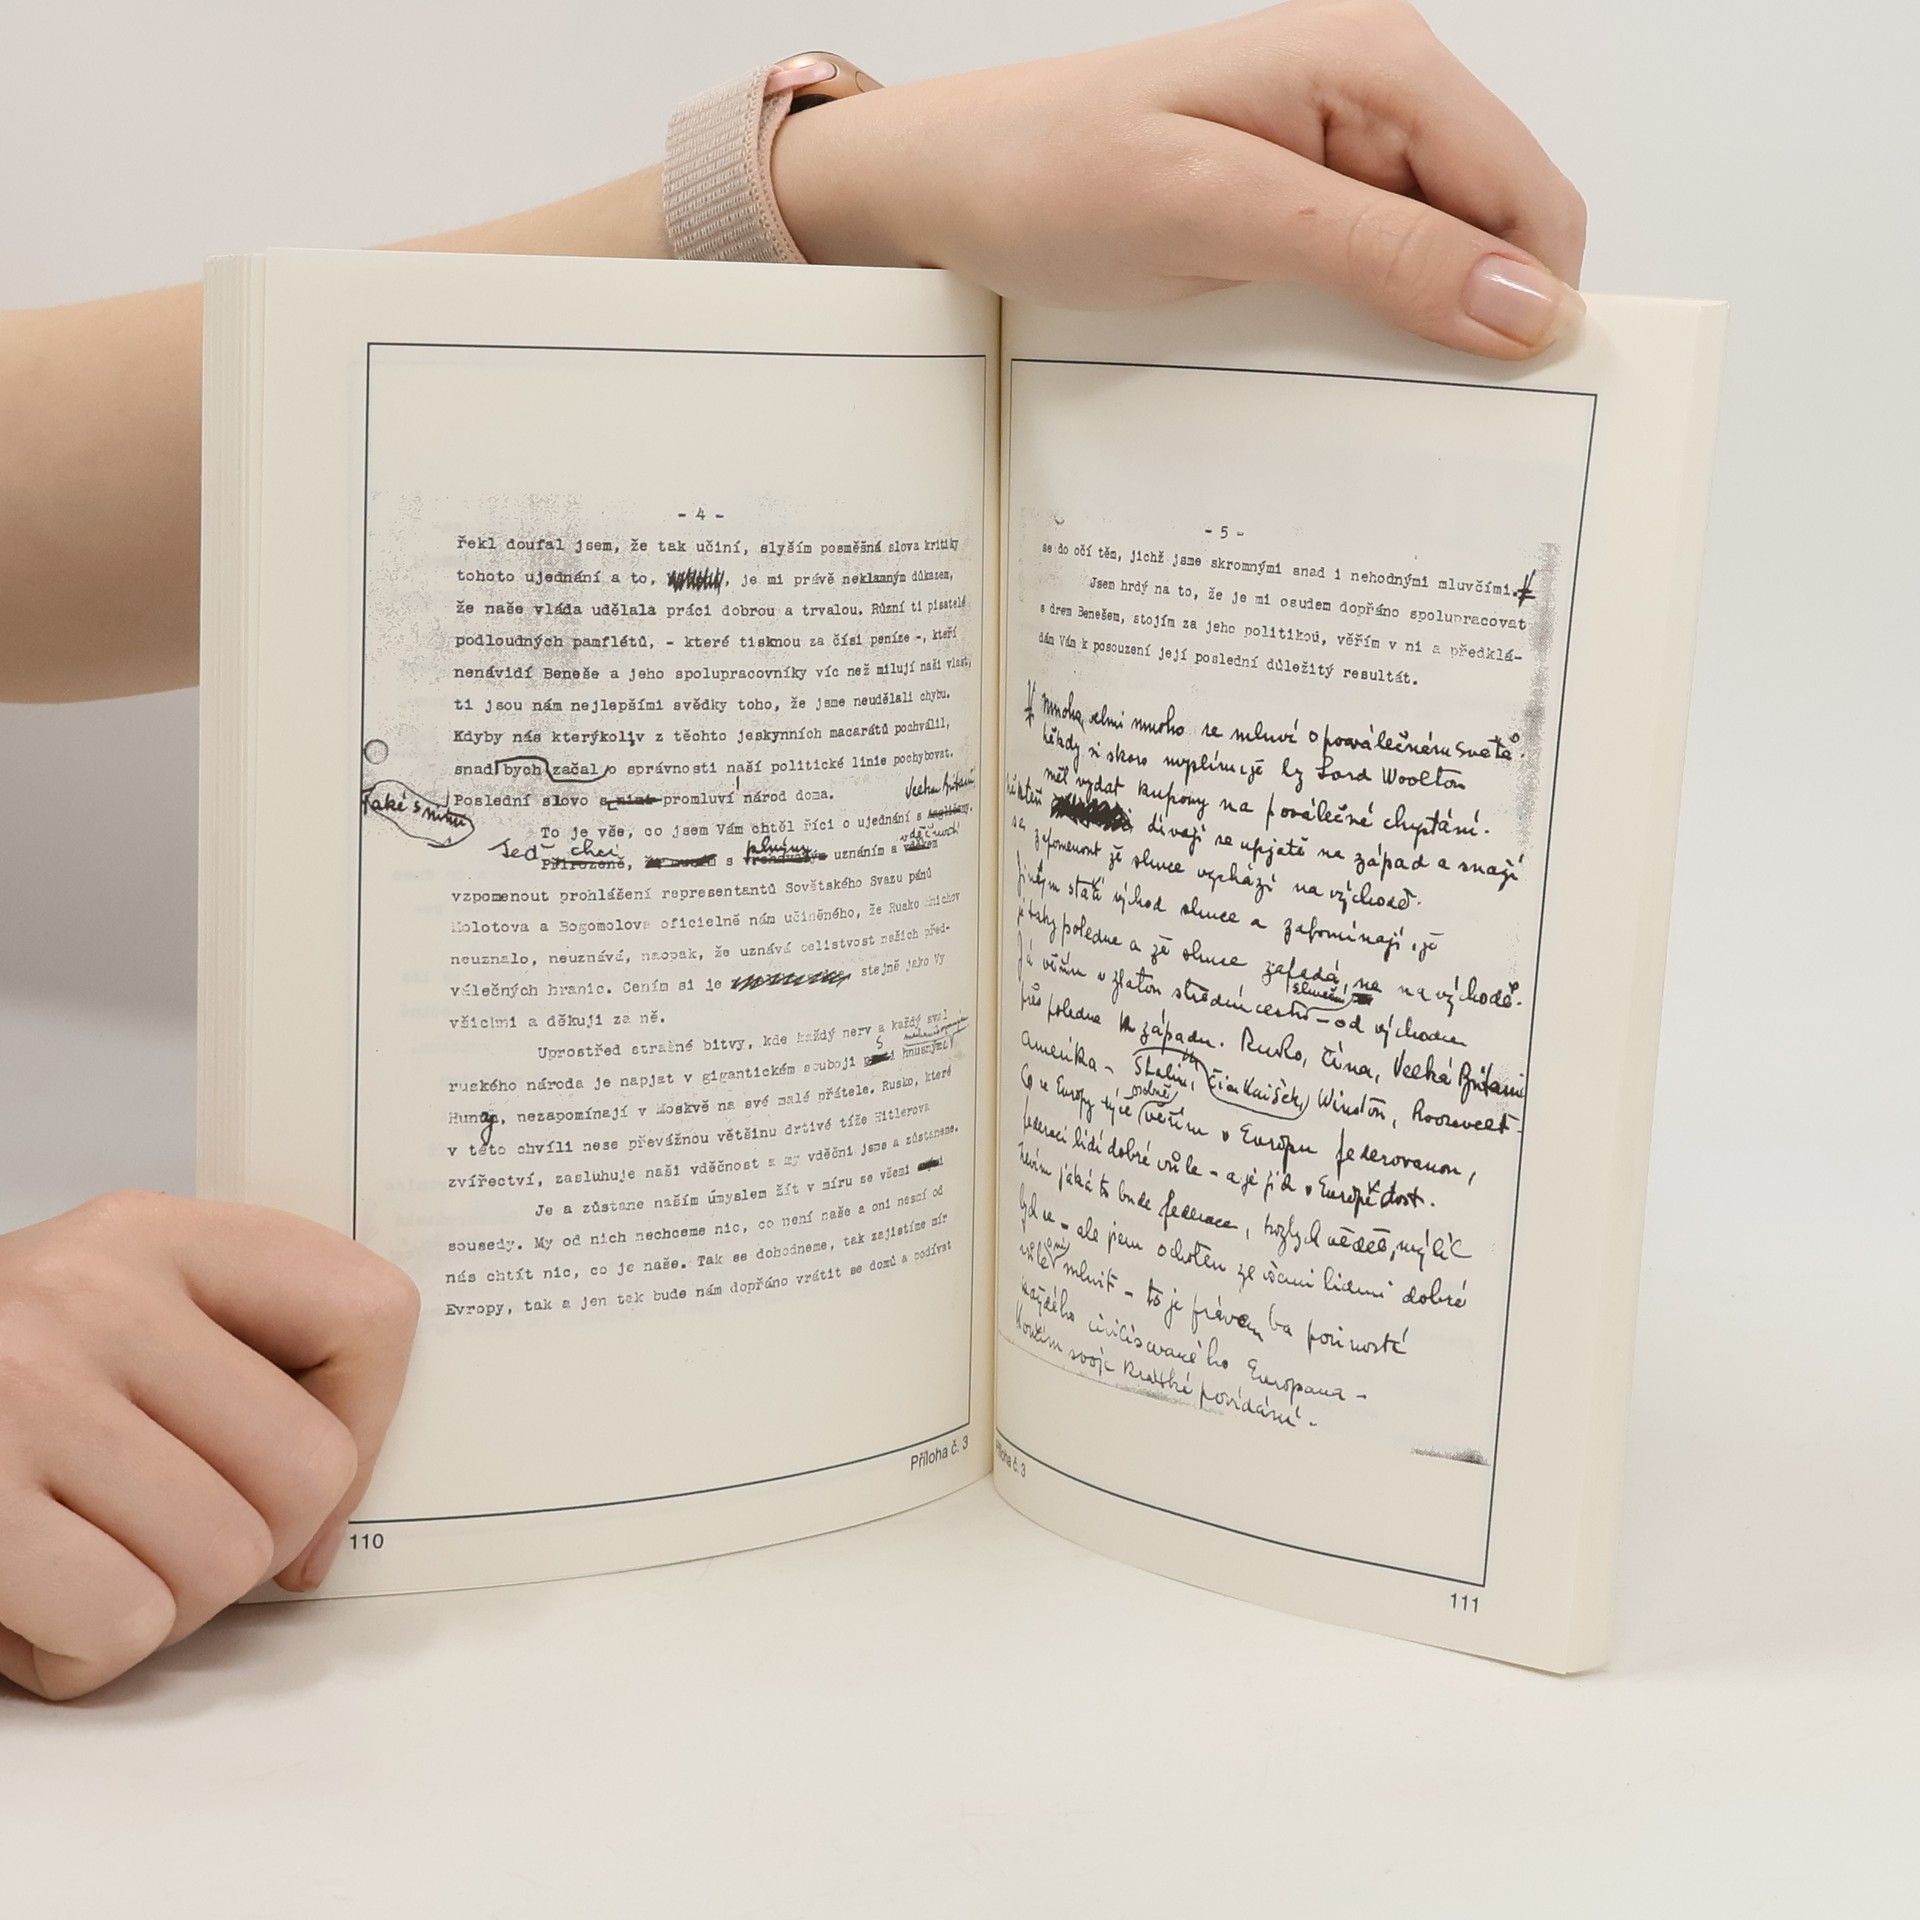 - 4 -
řekl doufal jsem, že tak učiní, slyším posměšná slova kritiky
tohoto ujednání a to, , je mi právě neklamným důkazem,
že naše vláda udělala práci dobrou a trvalou. Různí ti pisatelé
podloudných pamflétů, - které tisknou za čísi peníze -, kteří
nenávidí Beneše a jeho spolupracovníky víc než milují naši vlast,
ti jsou nám nejlepšími svědky toho, že jsme neudělali chybu.
Kdyby nás kterýkoliv z těchto jeskynních macarátů pochválil,
snad bych začal o správnosti naší politické linie pochybovat.
také s nimi
Poslední slovo s nimi promluví národ doma.
Velkou Británií
To je vše, co jsem Vám chtěl říci o ujednání s Angličany.
Teď chci plným vděčností
Přirozeně, s uznáním a vděkem
vzpomenout prohlášení representantů Sovětského Svazu pánů
Molotova a Bogomolova oficielně nám učiněného, že Rusko Mnichov
neuznalo, neuznává, naopak, že uznává celistvost našich před-
válečných hranic. Cením si je , stejně jako Vy
všichni a děkuji za ně.
Uprostřed strašné bitvy, kde každý nerv a každý sval
ruského národa je napjat v gigantickém souboji s
Huny, nezapomínají v Moskvě na své malé přátele. Rusko, které
v této chvíli nese převážnou většinu drtivé tíže Hitlerova
zvířectví, zasluhuje naši vděčnost a my vděčni jsme a zůstaneme.
Je a zůstane naším úmyslem žít v míru se všemi
sousedy. My od nich nechceme nic, co není naše a oni nesmí od
nás chtít nic, co je naše. Tak se dohodneme, tak zajistíme mír
Evropy, tak a jen tak bude nám dopřáno vrátit se domů a podívat
Příloha č. 3
110
- 5 -
se do očí těm, jichž jsme skromnými snad i nehodnými mluvčími.
Jsem hrdý na to, že je mi osudem dopřáno spolupracovat
s drem Benešem, stojím za jeho politikou, věřím v ni a předklá-
dám Vám k posouzení její poslední důležitý resultát.
Mnoho, velmi mnoho se mluví o poválečném světě.
Někdy si skoro myslím, že by Lord Woolton
měl vydat kupony na poválečné chystání.
Někteří dívají se upjatě na západ a snaží
se zapomenout že slunce vychází na východě.
Jiným stačí východ slunce a zapomínají, že
je taky poledne a že slunce zapadá, ne na východě.
Já věřím v zlatou střední cestu sluneční - od východu
přes poledne k západu. Rusko, Čína, Velká Britanie
Amerika - Stalin, Čiankaišek, Winston, Roosevelt -
Co se Evropy týče osobně věřím v Evropu federovanou,
federaci lidí dobré vůle - a je jich v Evropě dost.
Nevím jaká to bude federace,
- ale jsem ochoten se všemi lidmi dobré
vůle mluvit - to je právem ba povinností
každého civilisovaného Evropana -
Končím svoje krátké povídání.
Příloha č. 3
111